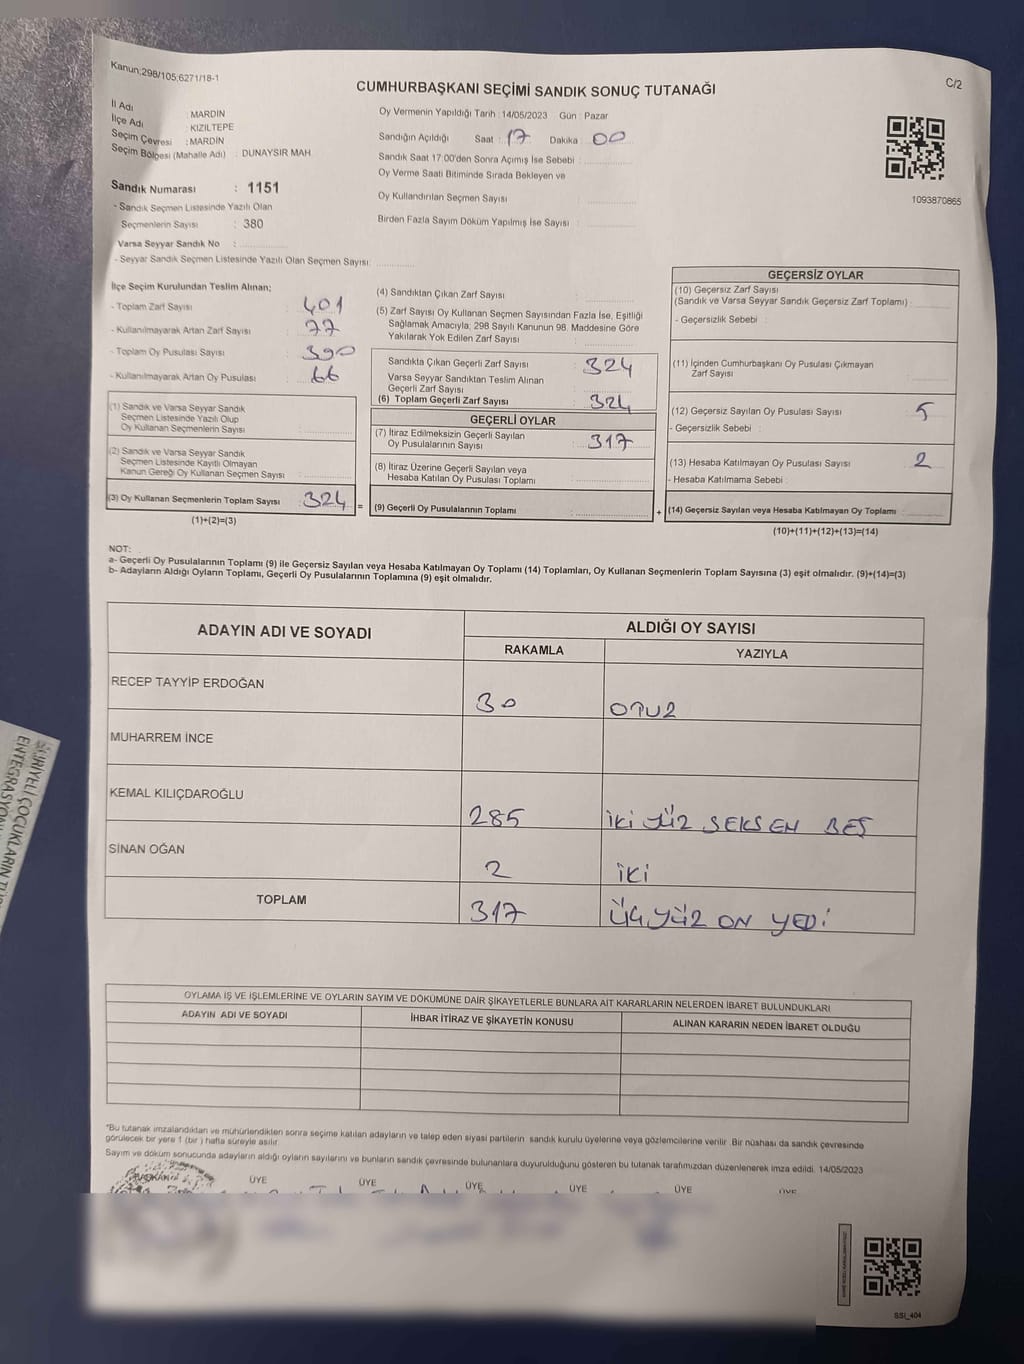 Kanun:298/105;6271/18-1
CUMHURBAŞKANI SEÇİMİ SANDIK SONUÇ TUTANAĞI
C/2
İl Adı : MARDİN
İlçe Adı : KIZILTEPE
Seçim Çevresi : MARDİN
Seçim Bölgesi (Mahalle Adı) : DUNAYSIR MAH.
Sandık Numarası : 1151
- Sandık Seçmen Listesinde Yazılı Olan
Seçmenlerin Sayısı : 380
Varsa Seyyar Sandık No :
- Seyyar Sandık Seçmen Listesinde Yazılı Olan Seçmen Sayısı:
Oy Vermenin Yapıldığı Tarih : 14/05/2023 Gün : Pazar
Sandığın Açıldığı Saat : 17 Dakika : 00
Sandık Saat 17:00'den Sonra Açımış İse Sebebi :
Oy Verme Saati Bitiminde Sırada Bekleyen ve
Oy Kullandırılan Seçmen Sayısı :
Birden Fazla Sayım Döküm Yapılmış İse Sayısı :
1093870865
İlçe Seçim Kurulundan Teslim Alınan;
- Toplam Zarf Sayısı : 401
- Kullanılmayarak Artan Zarf Sayısı : 77
- Toplam Oy Pusulası Sayısı : 390
- Kullanılmayarak Artan Oy Pusulası : 66
(1) Sandık ve Varsa Seyyar Sandık
Seçmen Listesinde Yazılı Olup
Oy Kullanan Seçmenlerin Sayısı :
(2) Sandık ve Varsa Seyyar Sandık
Seçmen Listesinde Kayıtlı Olmayan
Kanun Gereği Oy Kullanan Seçmen Sayısı :
(3) Oy Kullanan Seçmenlerin Toplam Sayısı : 324 =
(1)+(2)=(3)
(4) Sandıktan Çıkan Zarf Sayısı :
(5) Zarf Sayısı Oy Kullanan Seçmen Sayısından Fazla İse, Eşitliği
Sağlamak Amacıyla; 298 Sayılı Kanunun 98. Maddesine Göre
Yakılarak Yok Edilen Zarf Sayısı :
Sandıkta Çıkan Geçerli Zarf Sayısı : 324
Varsa Seyyar Sandıktan Teslim Alınan
Geçerli Zarf Sayısı :
(6) Toplam Geçerli Zarf Sayısı : 324
GEÇERLİ OYLAR
(7) İtiraz Edilmeksizin Geçerli Sayılan
Oy Pusulalarının Sayısı : 317
(8) İtiraz Üzerine Geçerli Sayılan veya
Hesaba Katılan Oy Pusulası Toplamı :
(9) Geçerli Oy Pusulalarının Toplamı : +
GEÇERSİZ OYLAR
(10) Geçersiz Zarf Sayısı
(Sandık ve Varsa Seyyar Sandık Geçersiz Zarf Toplamı) :
- Geçersizlik Sebebi :
(11) İçinden Cumhurbaşkanı Oy Pusulası Çıkmayan
Zarf Sayısı :
(12) Geçersiz Sayılan Oy Pusulası Sayısı : 5
- Geçersizlik Sebebi :
(13) Hesaba Katılmayan Oy Pusulası Sayısı : 2
- Hesaba Katılmama Sebebi :
(14) Geçersiz Sayılan veya Hesaba Katılmayan Oy Toplamı :
(10)+(11)+(12)+(13)=(14)
NOT:
a- Geçerli Oy Pusulalarının Toplamı (9) ile Geçersiz Sayılan veya Hesaba Katılmayan Oy Toplamı (14) Toplamları, Oy Kullanan Seçmenlerin Toplam Sayısına (3) eşit olmalıdır. (9)+(14)=(3)
b- Adayların Aldığı Oyların Toplamı, Geçerli Oy Pusulalarının Toplamına (9) eşit olmalıdır.
ADAYIN ADI VE SOYADI
ALDIĞI OY SAYISI
RAKAMLA YAZIYLA
RECEP TAYYİP ERDOĞAN 30 OTUZ
MUHARREM İNCE
KEMAL KILIÇDAROĞLU 285 İKİ YÜZ SEKSEN BEŞ
SİNAN OĞAN 2 İKİ
TOPLAM 317 ÜÇ YÜZ ON YEDİ
OYLAMA İŞ VE İŞLEMLERİNE VE OYLARIN SAYIM VE DÖKÜMÜNE DAİR ŞİKAYETLERLE BUNLARA AİT KARARLARIN NELERDEN İBARET BULUNDUKLARI
ADAYIN ADI VE SOYADI İHBAR İTİRAZ VE ŞİKAYETİN KONUSU ALINAN KARARIN NEDEN İBARET OLDUĞU
*Bu tutanak imzalandıktan ve mühürlendikten sonra seçime katılan adayların ve talep eden siyasi partilerin sandık kurulu üyelerine veya gözlemcilerine verilir .Bir nüshası da sandık çevresinde
görülecek bir yere 1 (bir ) hafta süreyle asılır.
Sayım ve döküm sonucunda adayların aldığı oyların sayılarını ve bunların sandık çevresinde bulunanlara duyurulduğunu gösteren bu tutanak tarafımızdan düzenlenerek imza edildi. 14/05/2023
BAŞKAN ÜYE ÜYE ÜYE ÜYE ÜYE ÜYE
SSI_404
SURİYELİ ÇOCUKLARIN
ENTEGRASYON